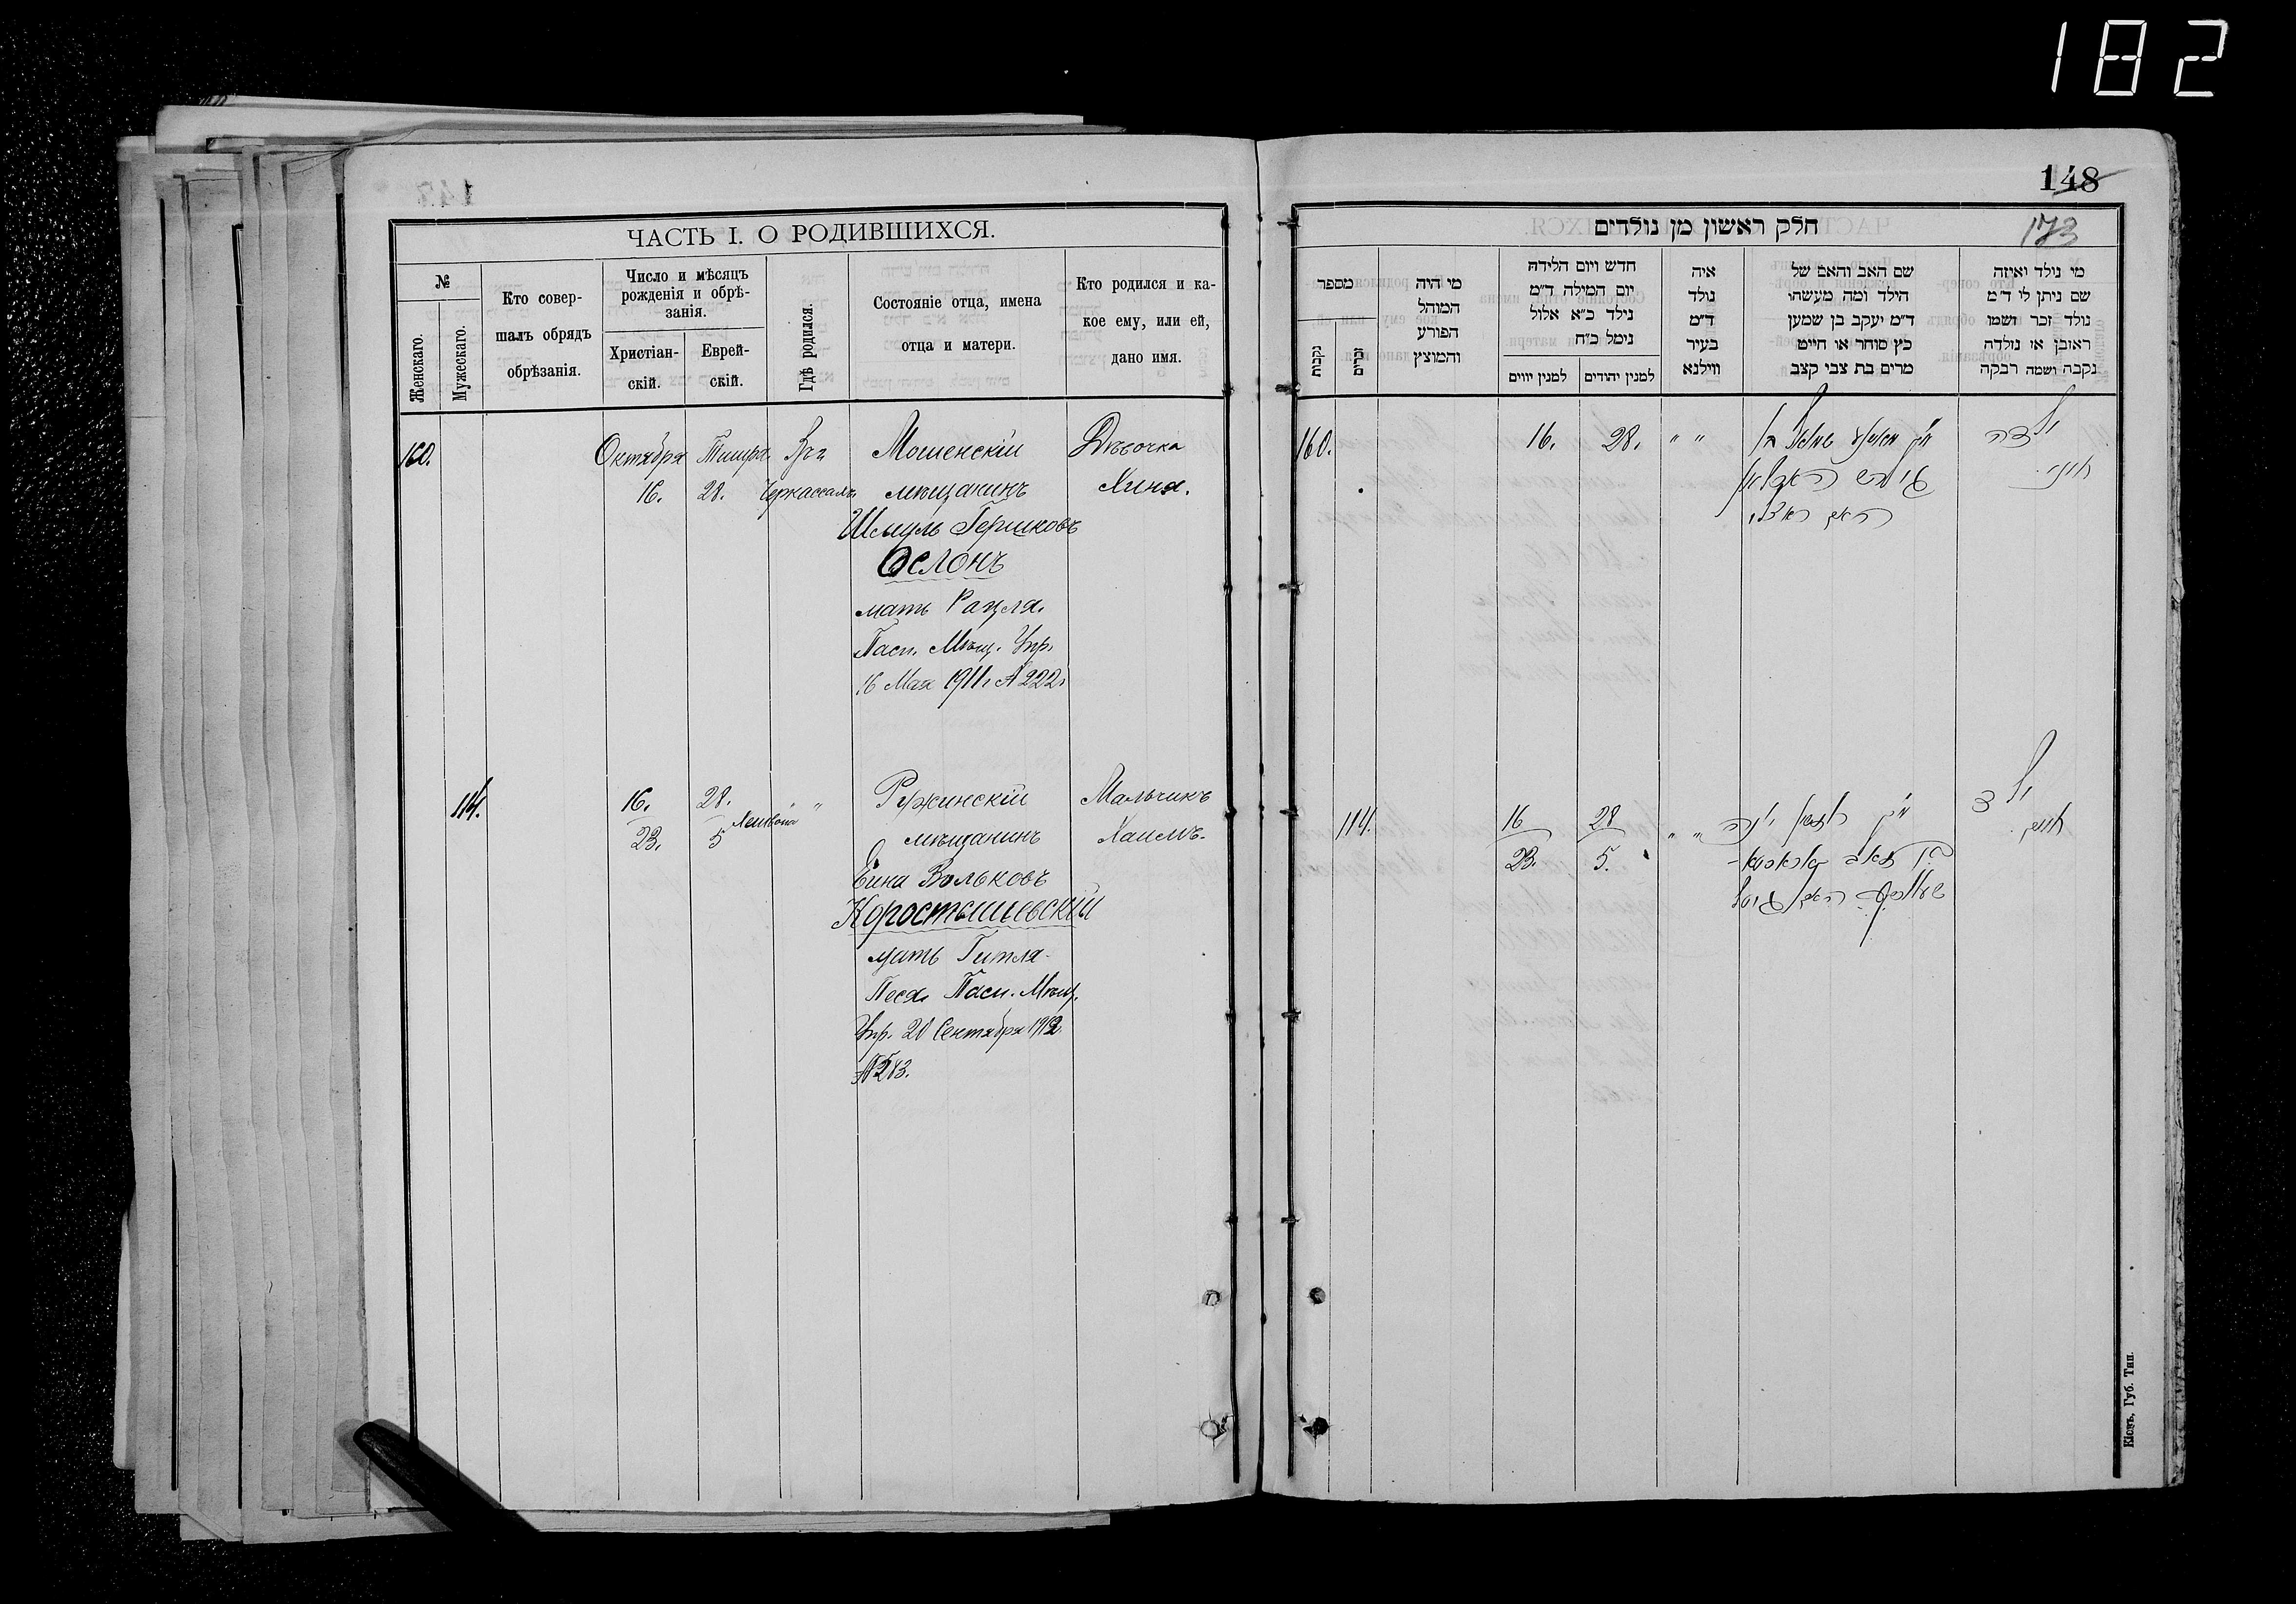 182
ЧАСТЬ I. О РОДИВШИХСЯ.
№
Женскаго.
Мужескаго.
Кто совер-
шалъ обрядъ
обрѣзанія.
Число и мѣсяцъ
рожденія и обрѣ-
занія.
Христіан-
скій.
Еврей-
скій.
Гдѣ родился.
Состояніе отца, имена
отца и матери.
Кто родился и ка-
кое ему, или ей,
дано имя.
160.
Октября
16.
Тишри
28.
Черкассахъ
Мошенскій
мѣщанинъ
Шмуль Гершковъ
Ослонъ
мать Рахля.
Пасп. Мѣщ. Упр.
16 Мая 1911 г. № 222.
Дѣвочка
Хиня.
114.
16.
23.
28.
5
" "
Ружинскій
мѣщанинъ
Волько́въ
Коростышевскій
мать Гитля-
Песя. Пасп. Мѣщ.
Упр. 20 Сентября 1912
Мальчикъ
Хаимъ.
148
173
חלק ראשון מן נולדים
מספר
נקבות
זכרים
מי היה
המוהל
הפורע
והמוצץ
חדש ויום הלידה
יום המילה ד״מ
נילד כ״א אלול
נימל כ״ח
למנין יווים
למנין יהודים
איה
נולד
ד״מ
בעיר
ווילנא
שם האב והאם של
הילד ומה מעשהו
ד״מ יעקב בן שמען
כץ סוחר או חייט
מרים בת צבי קצב
מי נולד ואיזה
שם ניתן לי ד״מ
נולד זכר ושמו
ראובן או נולדה
נקבה ושמה רבקה
160.
16.
28.
" "
ילדה
114.
16
23.
28
5.
" "
ילד
Кіевъ, Губ. Тип.